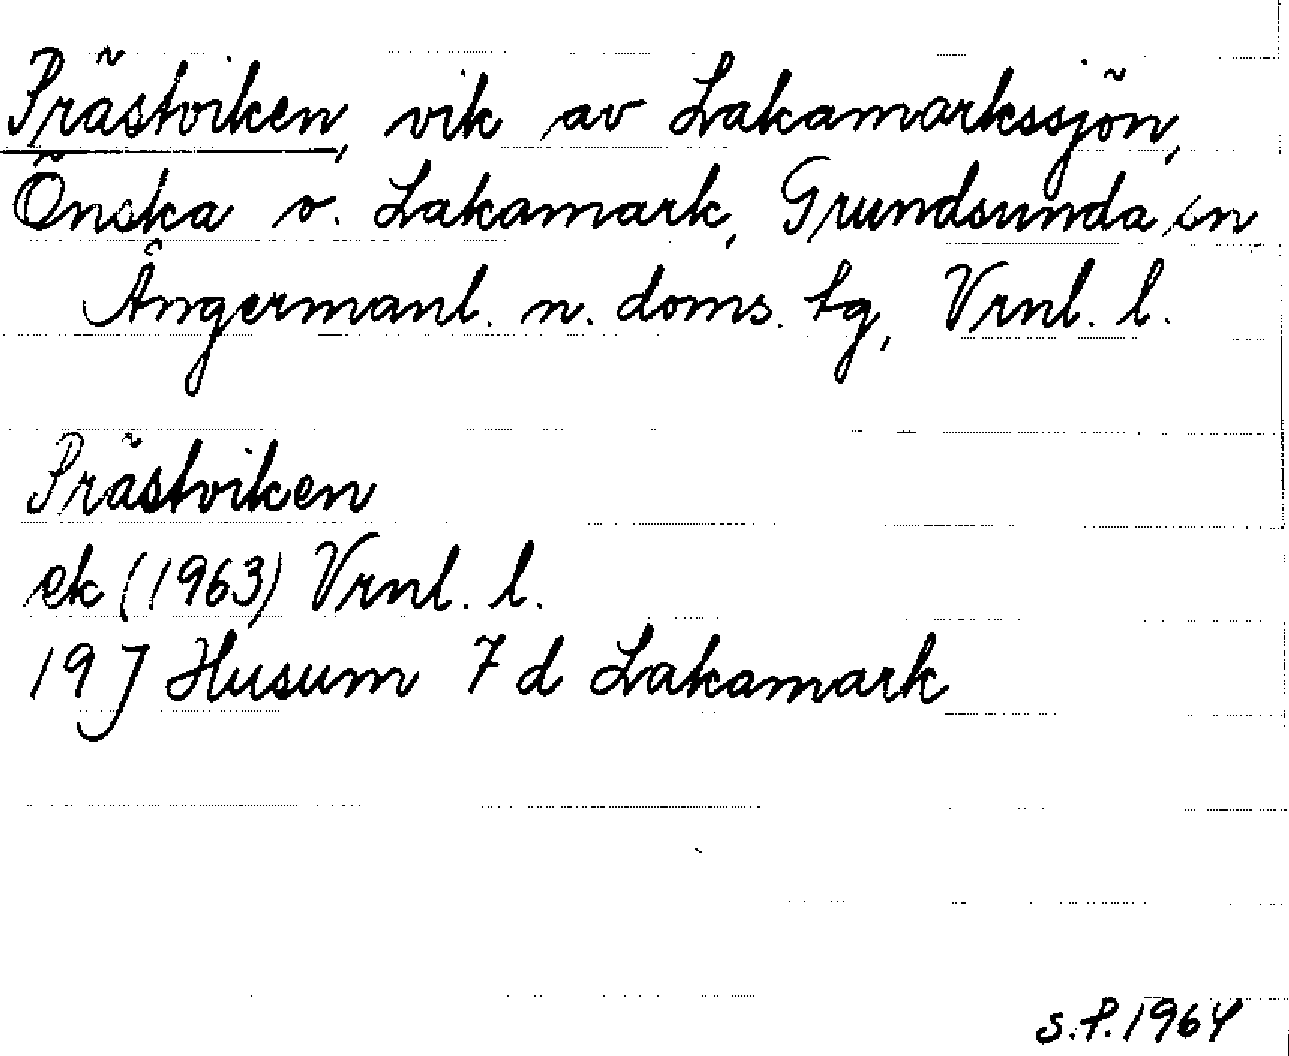 Prästviken, vik av Lakamarkssjön,
Önska o. Lakamark, Grundsunda sn
Ångermanl. n. doms. tg, Vrnl. l.
Prästviken
ek (1963) Vrnl. l.
19 J Husum 7 d Lakamark
s.f. 1964